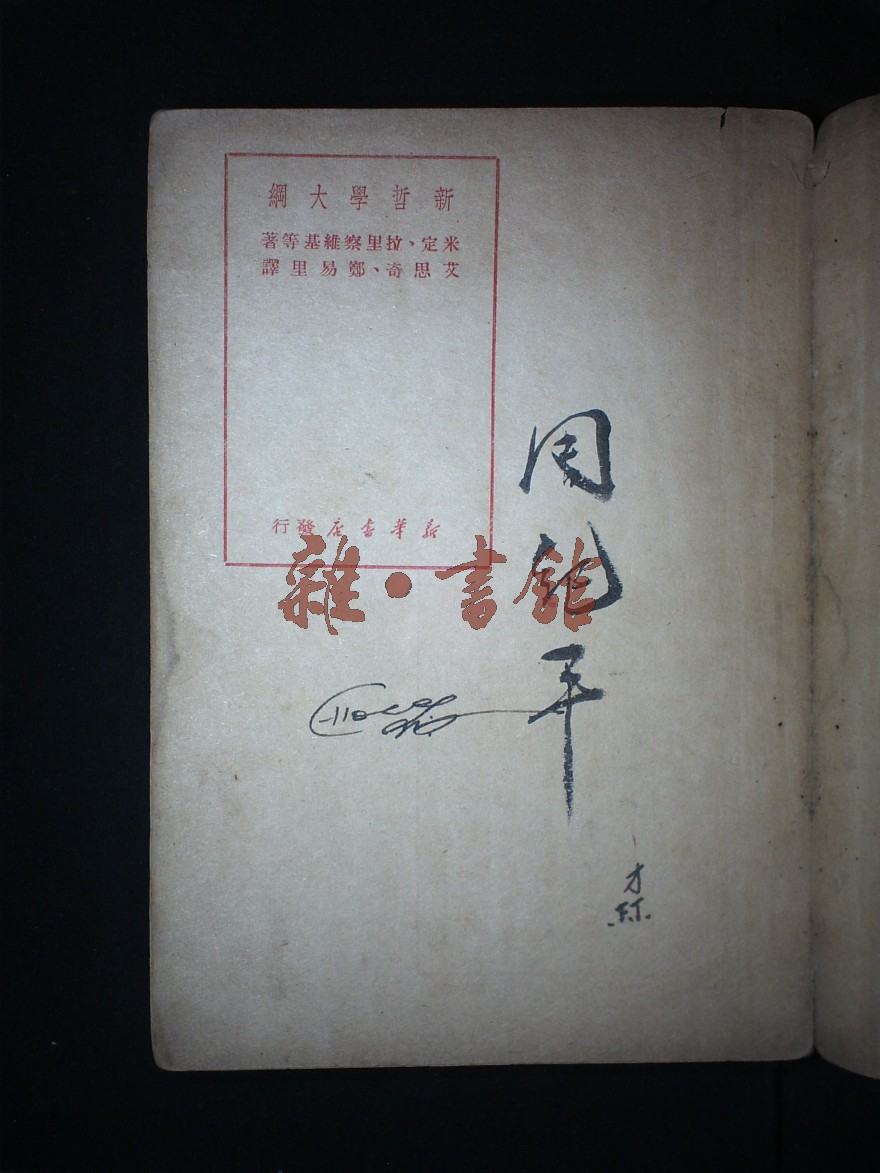 新哲學大綱
米定、拉里察維基等著
艾思奇、鄭易里譯
新華書店發行
雜·書館
周
平